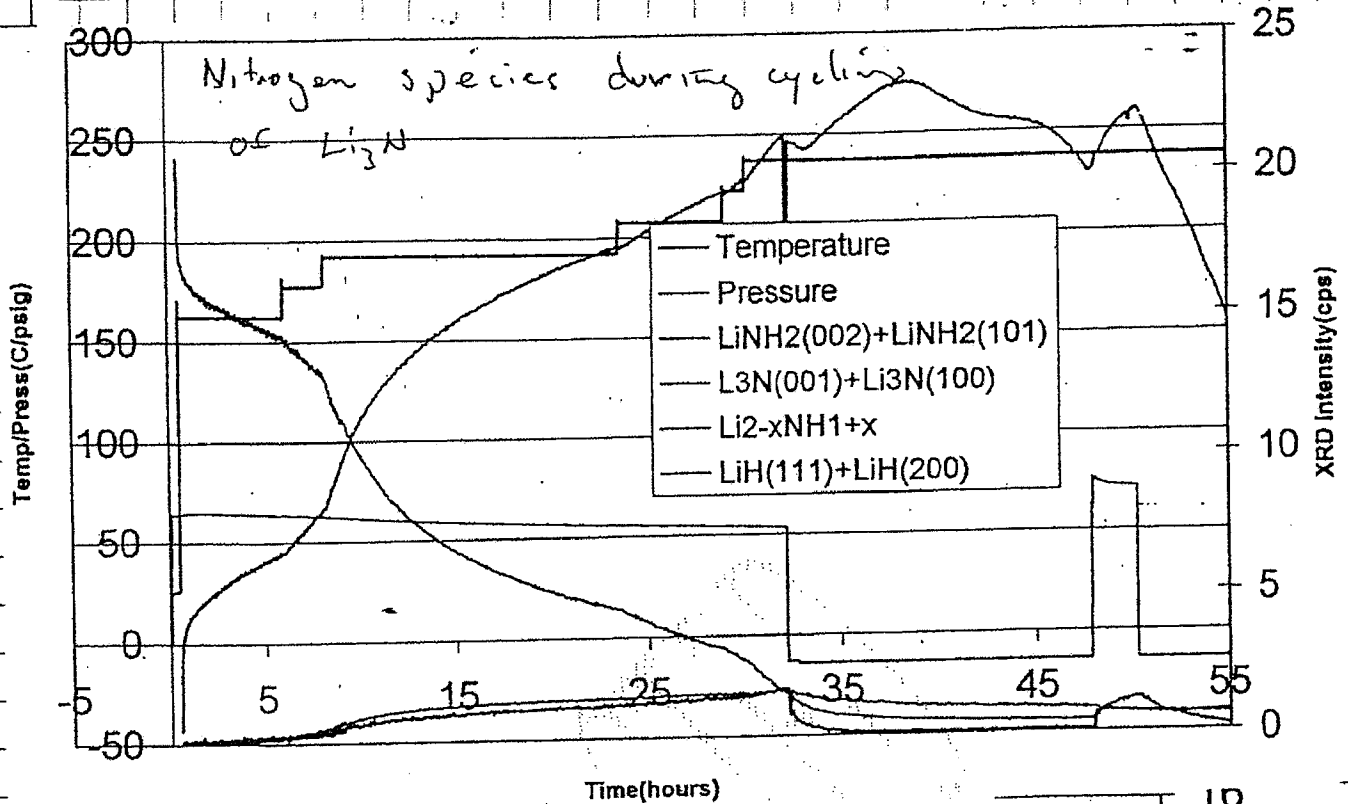 Nitrogen species during cycling
of Li3N
300
250
200
150
100
50
0
-50
Temp/Press(C/psig)
25
20
15
10
5
0
XRD Intensity(cps)
Temperature
Pressure
LiNH2(002)+LiNH2(101)
L3N(001)+Li3N(100)
Li2-xNH1+x
LiH(111)+LiH(200)
-5 5 15 25 35 45 55
Time(hours)